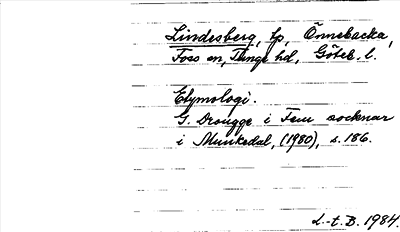 Lindesberg, tp, Önnebacka,
Foss sn, Tunge hd, Göteb. l.
Etymologi.
G. Drougge i Fem socknar
i Munkedal, (1980), s. 186.
L-t. B. 1984.